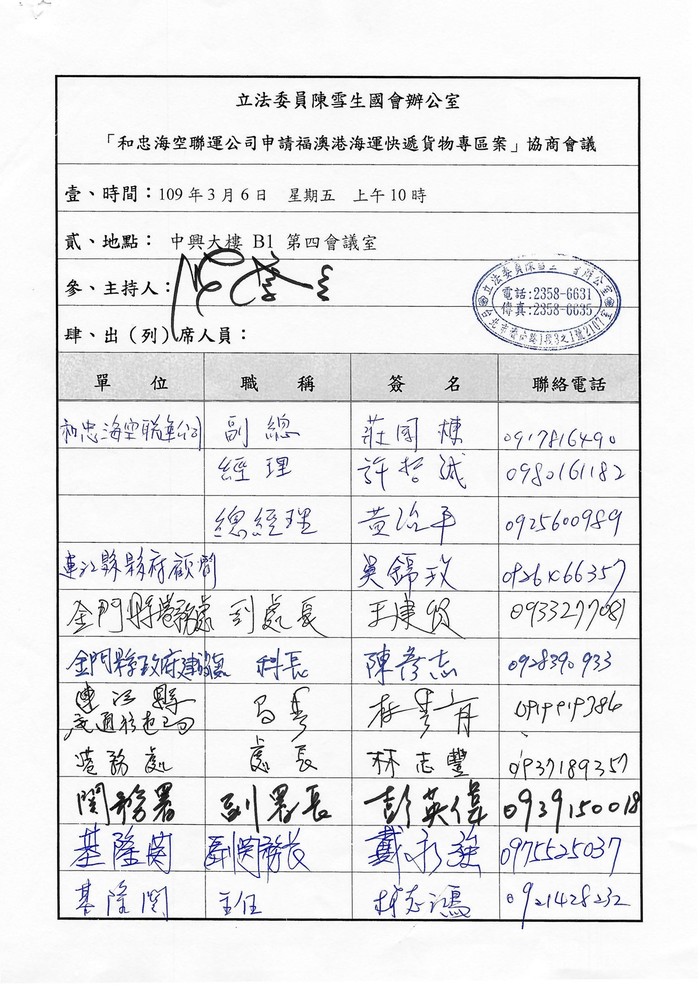 立法委員陳雪生國會辦公室
「和忠海空聯運公司申請福澳港海運快遞貨物專區案」協商會議
壹、時間：109年3月6日 星期五 上午10時
貳、地點： 中興大樓 B1 第四會議室
參、主持人：
電話:2358-6631
傳真:2358-6635
肆、出（列）席人員：
單 位 職 稱 簽 名 聯絡電話
和忠海空聯運公司 副總 莊國棟 0917816490
經理 許哲誠 0980161182
總經理 黃治平 0925600989
連江縣縣府顧問 吳錦玫
金門縣港務處 副處長 王建 0933277081
金門縣政府建設處 科長 陳彥志 0928390933
連江縣 0919919386
港務處 處長 林志豐 0937189357
關務署 副署長 彭英偉 0939150018
基隆關 副關務長 戴永強 0975525037
基隆關 主任 柯志鴻 0921428232